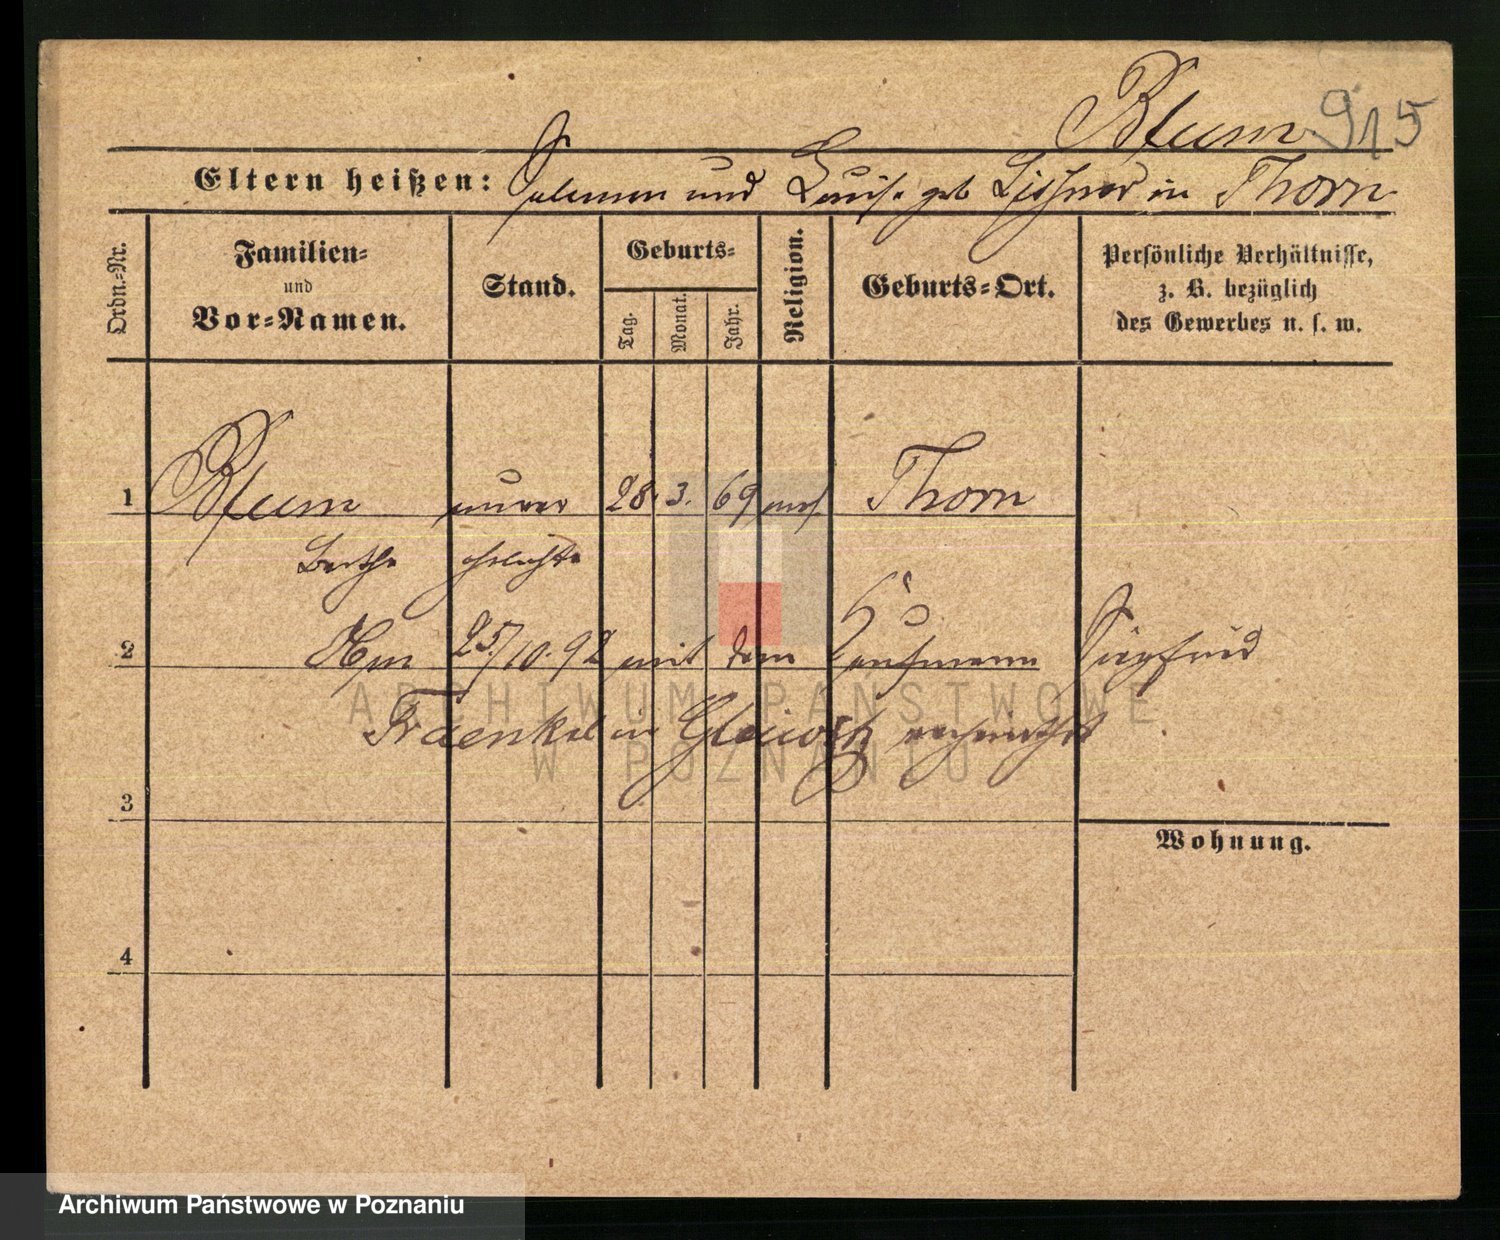 Blum 915
Eltern heißen: Salomon und Louise geb in Thorn
Ordn.=Nr.
Familien=
und
Vor=Namen.
Stand.
Geburts=
Tag.
Monat.
Jahr.
Religion.
Geburts=Ort.
Persönliche Verhältnisse,
z. B. bezüglich
des Gewerbes u. s. w.
1 Blum unver 28. 3. 69 mos Thorn
Bertha ehelichte
2 25/10. 92 mit dem Kaufmann Siegfried
Fraenkel in Gleiwitz
3
Wohnung.
4
ARCHIWUM PAŃSTWOWE
W POZNANIU
Archiwum Państwowe w Poznaniu